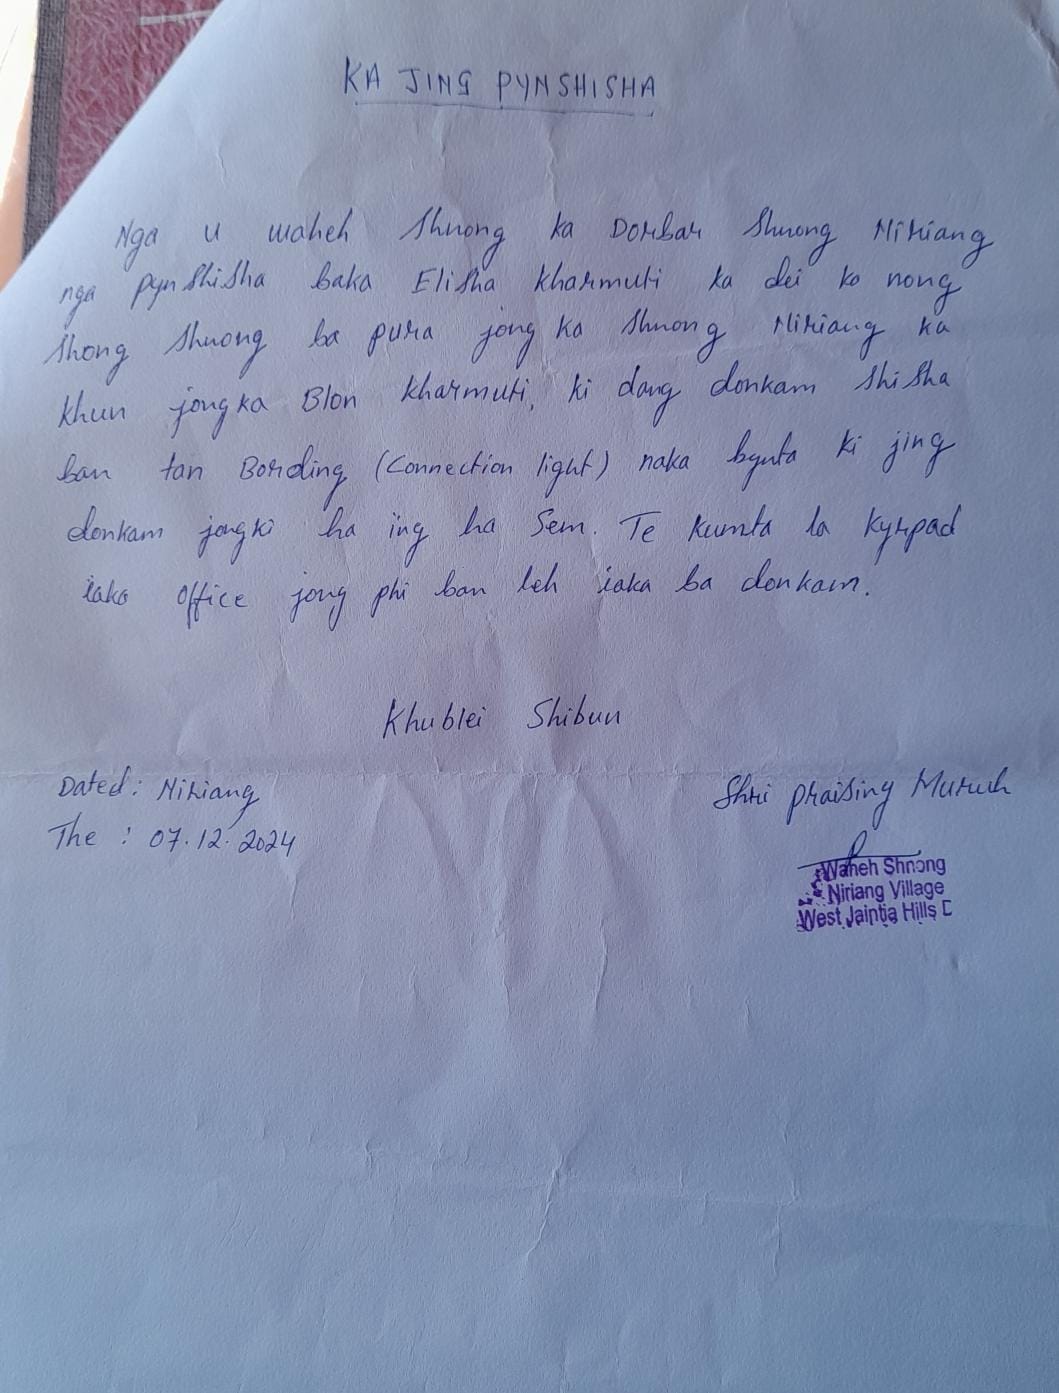 KA JING PYNSHISHA
Nga u waheh Shnong ka Dorbar Shnong Niriang
nga pynshisha baka Elisha kharmuti ka dei ko nong
shong shnong ba pura jong ka shnong Niriang ka
khun jong ka Blon kharmuti, ki dang donkam shisha
ban tan Bording (Connection light) naka bynta ki jing
donkam jongki ha ing ha Sem. Te kumta la kyrpad
iaka office jong phi ban leh iaka ba donkam.
Khublei Shibun
Dated: Niriang
The : 07.12.2024
Shri praising Muruh
Waheh Shnong
Niriang Village
West Jaintia Hills D